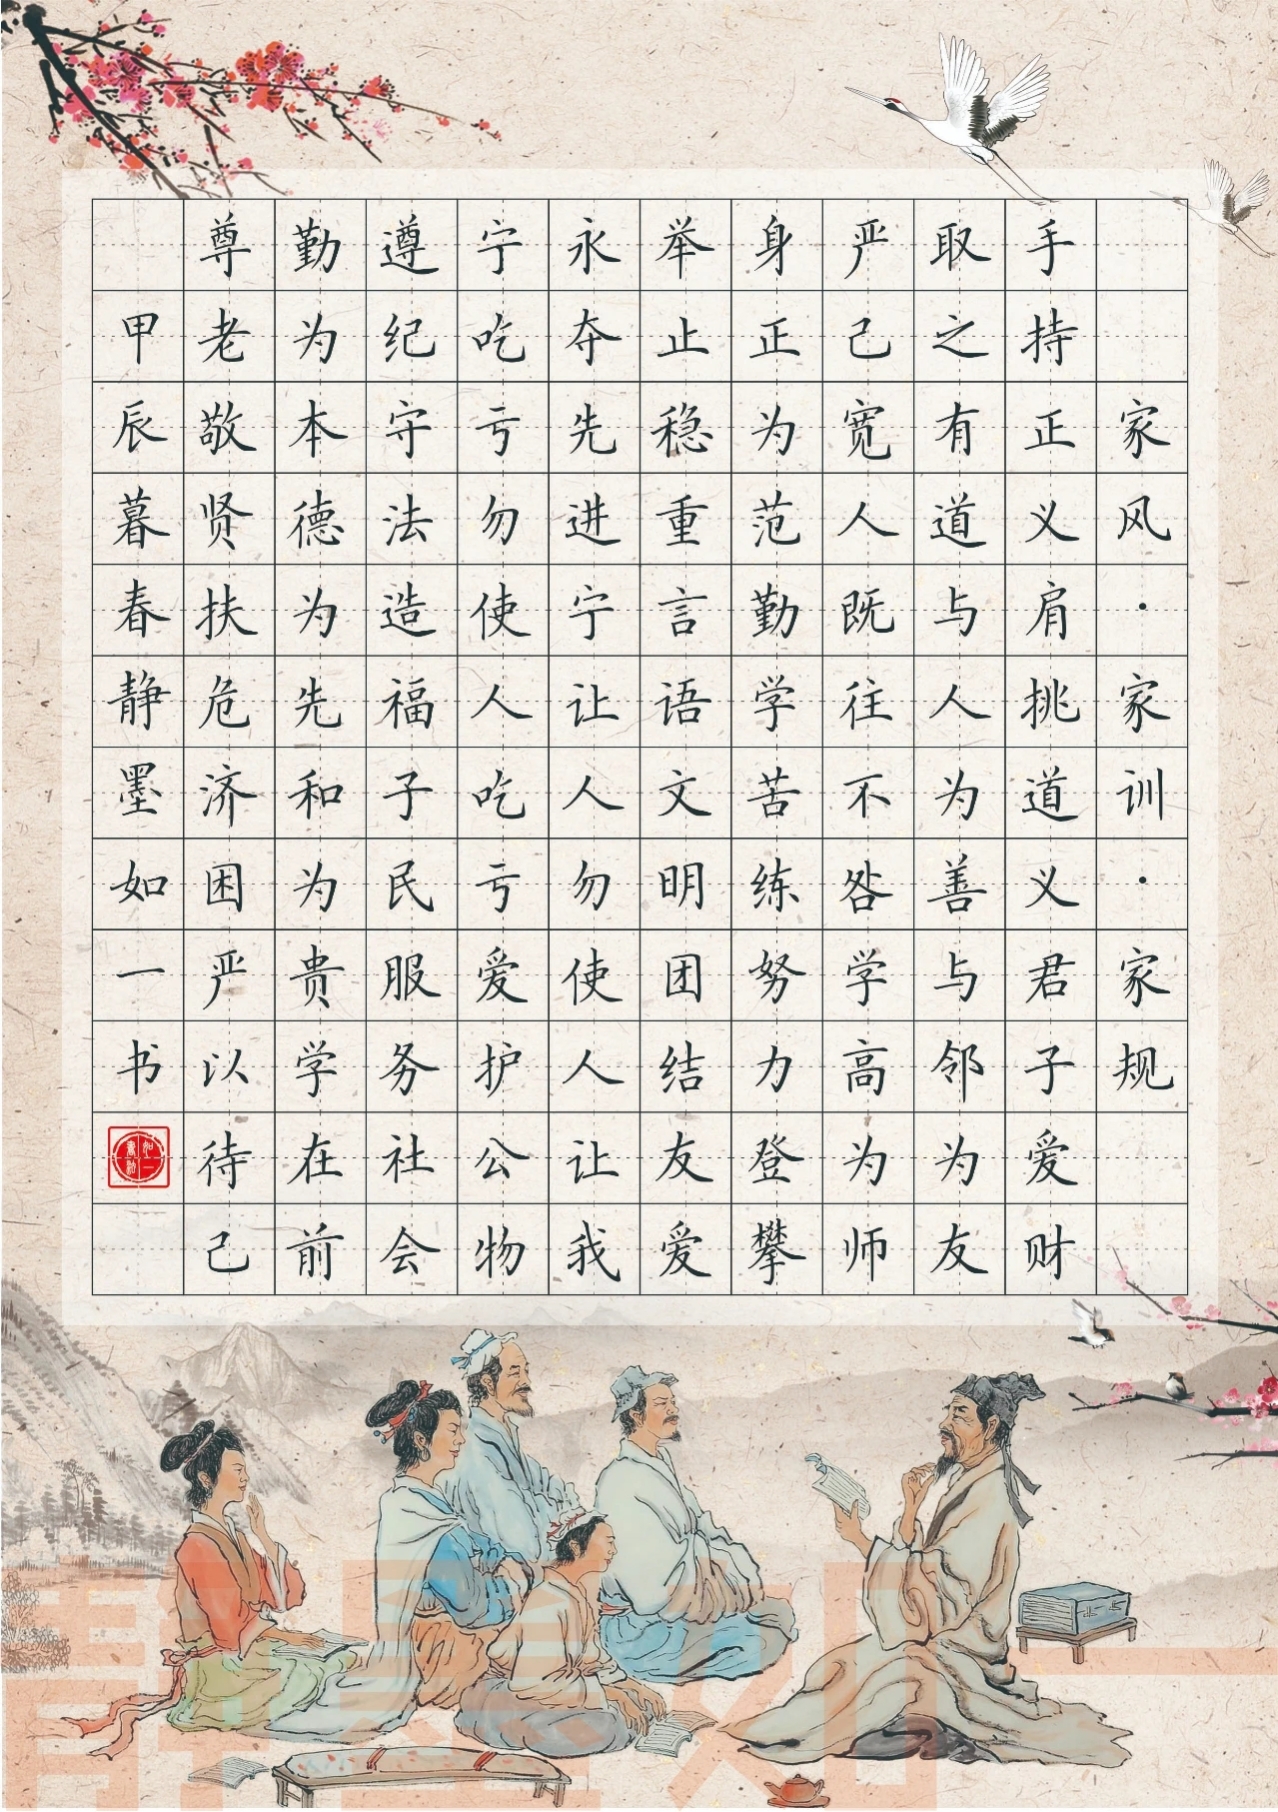 家风·家训·家规
手持正义肩挑道义君子爱财
取之有道与人为善与邻为友
严己宽人既往不咎学高为师
身正为范勤学苦练努力登攀
举止稳重言语文明团结友爱
永夺先进宁让人勿使人让我
宁吃亏勿使人吃亏爱护公物
遵纪守法造福子民服务社会
勤为本德为先和为贵学在前
尊老敬贤扶危济困严以待己
甲辰暮春静墨如一书
静墨如一